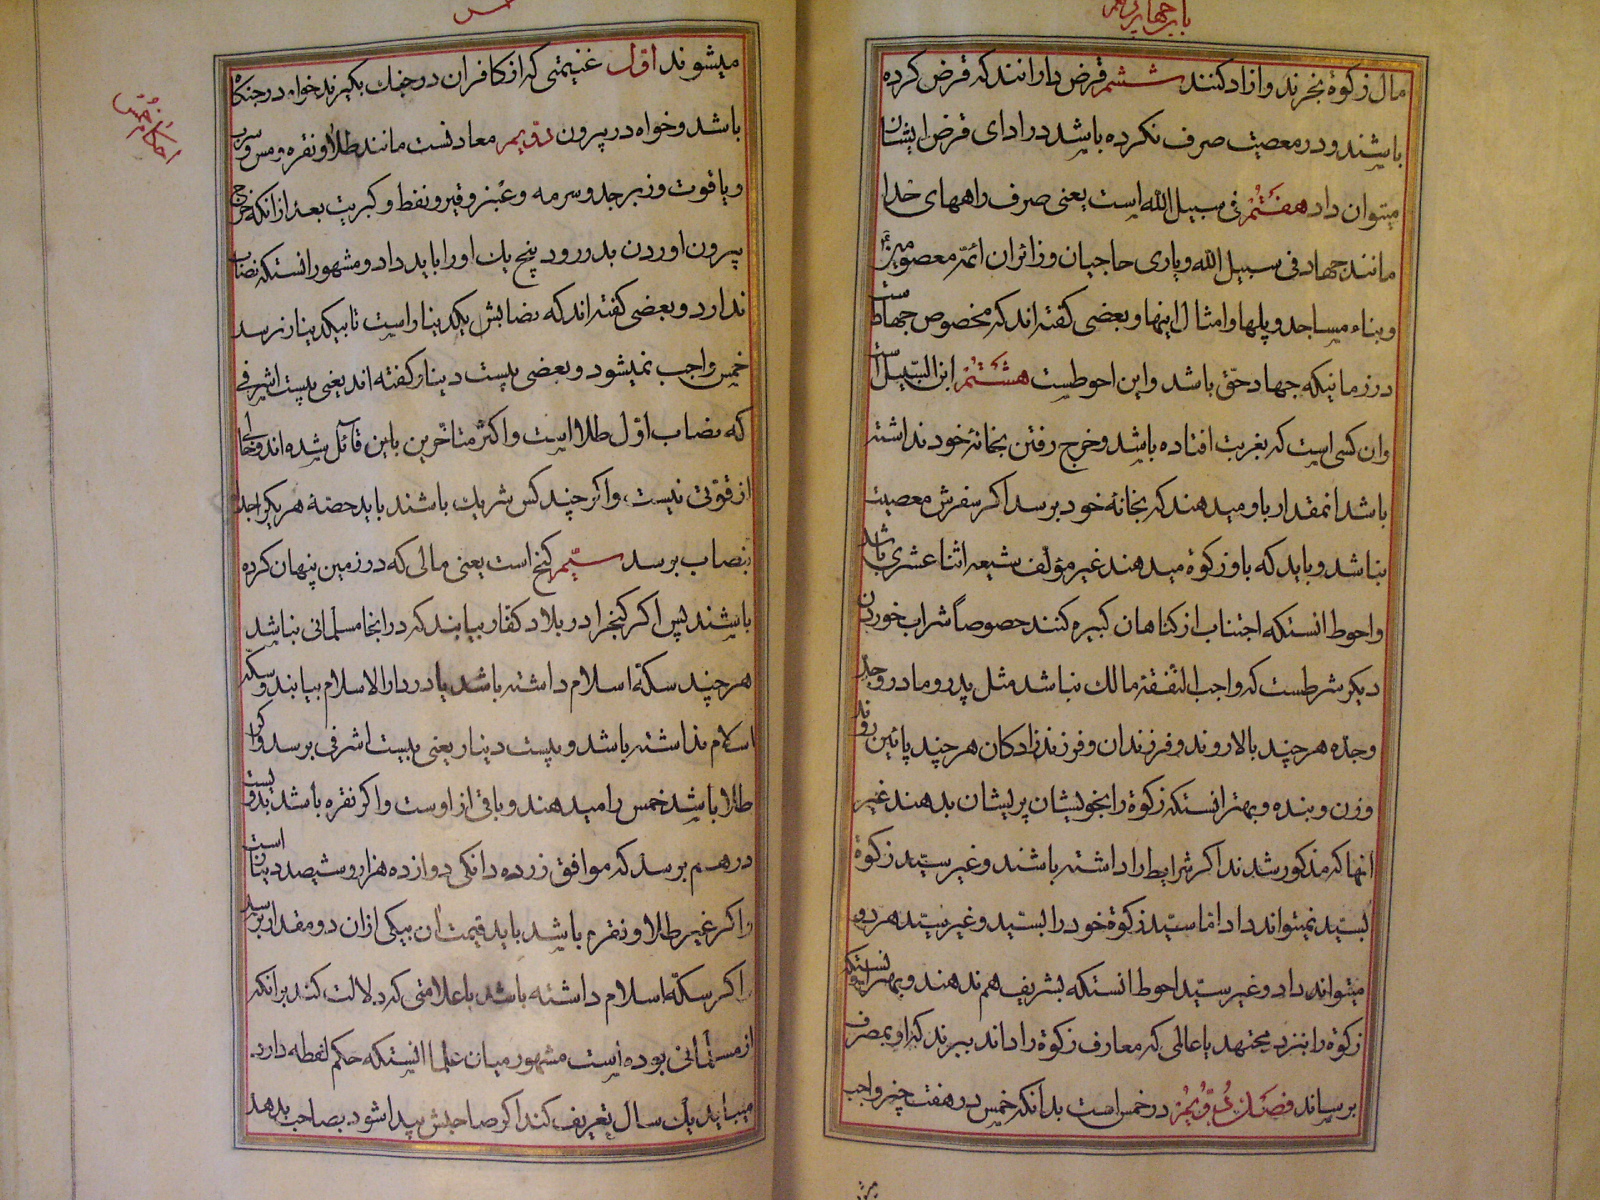 باب چهاردهم
مال زکوة بخرند و ازاد کنند ششم قرض دارانند که قرض کرده
باشند و در معصیت صرف نکرده باشد در ادای قرض ایشان
میتوان داد هفتم فی سبیل الله است یعنی صرف راههای خدا
مانند جهاد فی سبیل الله و یاری حاجیان و زائران ائمه معصومین
و بناء مساجد و پلها و امثال اینها و بعضی گفته اند که مخصوص جهاد است
در زمانیکه جهاد حق باشد و این احوطست هشتم ابن السبیل است
و ان کسی است که بغربت افتاده باشد و خرج رفتن بخانه خود نداشته
باشد انمقدار باو میدهند که بخانه خود برسد اگر سفرش معصیت
نباشد و باید که باو زکوة میدهند غیر مؤلف شیعه اثنا عشری باشد
و احوط انستکه اجتناب از کناهان کبیره کنند خصوصاً شراب خوردن
دیکر شرطست که واجب النفقه مالک نباشد مثل پدر و مادر و جد
و جده هر چند بالا روند و فرزندان و فرزند زادکان هر چند پائین روند
و زن و بنده و بهتر انستکه زکوة را بخویشان پریشان بدهند غیر
انها که مذکور شدند اکر شرایط را داشته باشند و غیر سید زکوة
بسید نمیتواند داد اما سید زکوة خود را بسید و غیر سید هر دو
میتواند داد و غیر سید احوط انستکه بشریف هم ندهند و بهتر انستکه
زکوة را بنزد مجتهد یا عالمی که معارف زکوة را داند ببرند که او بمصرف
برساند فصل دویم در خمس است بدانکه خمس در هفت چیز واجب
میشوند اول غنیمتی که از کافران در جنك بکیرند خواه در جنکاه
باشد و خواه در بیرون دویم معادنست مانند طلا و نقره و مس و سرب
و یاقوت و زبرجد و سرمه و عنبر و قیر و نفط و کبریت بعد از انکه خرج
بیرون اوردن بدر رود پنج یك او را باید داد و مشهور انستکه نصاب
ندارد و بعضی کفته اند که نصابش یکدینار است تا بیکدینار نرسد
خمس واجب نمیشود و بعضی بیست دینار کفته اند یعنی بیست اشرفی
که نصاب اول طلا است و اکثر متاخرین باین قائل شده اند و خالی
از قوتی نیست و اکر چند کس شریك باشند باید حصه هر یک جدا
بنصاب برسد سیم کنج است یعنی مالی که در زمین پنهان کرده
باشند پس اکر کنج را در بلاد کفار بیابند که در انجا مسلمانی نباشد
هر چند سکه اسلام داشته باشد یا در دار الاسلام بیابند و سکه
اسلام نداشته باشد و بیست دینار یعنی بیست اشرفی برسد و اکر
طلا باشد خمس را میدهند و باقی از اوست و اکر نقره باشد بدویست
درهم برسد که موافق زر ده دانکی دوازده هزار و ششصد دینار است
و اکر غیر طلا و نقره باشد باید قیمت ان بیکی از ان دو مقدار برسد
و اکر سکه اسلام داشته باشد یا علامتی که دلالت کند بر انکه
از مسلمانی بوده است مشهور میان علما انستکه حکم لقطه دارد
میباید یك سال تعریف کند اکر صاحبش پیدا شود بصاحب بدهد
احکام خمس